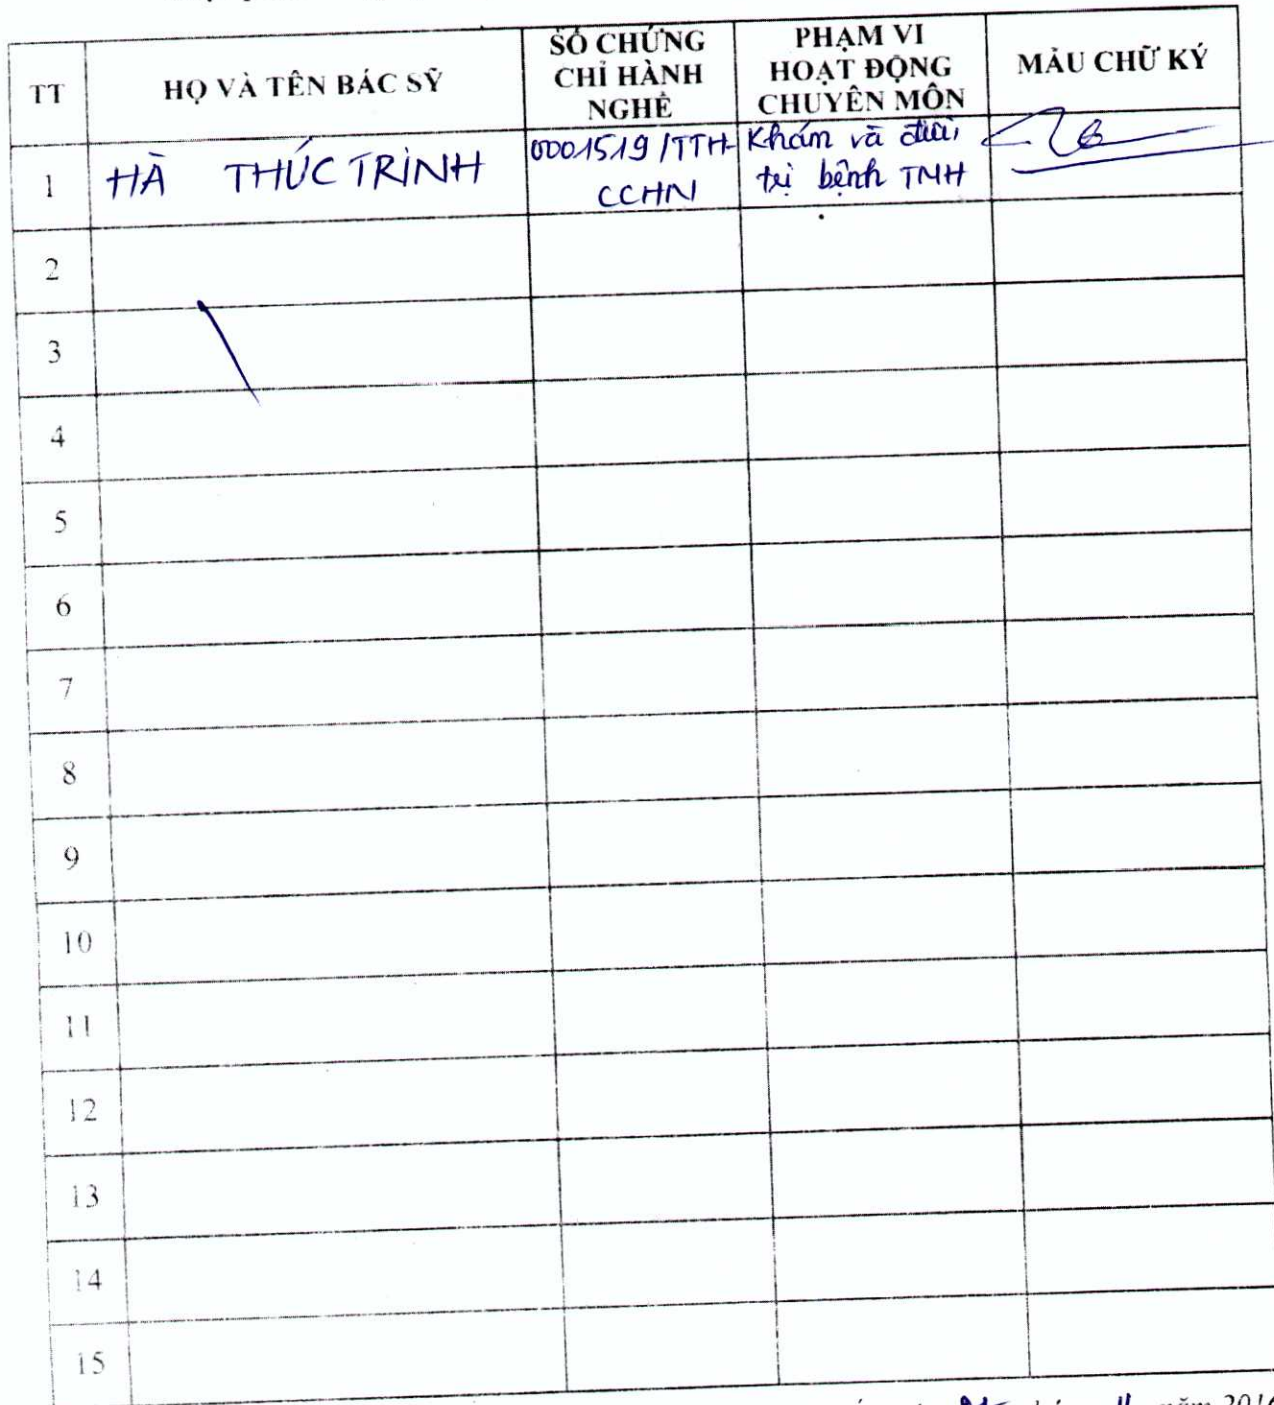 TT
HỌ VÀ TÊN BÁC SỸ
SỐ CHỨNG
CHỈ HÀNH
NGHỀ
PHẠM VI
HOẠT ĐỘNG
CHUYÊN MÔN
MẪU CHỮ KÝ
1
HÀ THÚC TRÌNH
0001519/TTH-
CCHN
Khám và điều
trị bệnh TMH
2
3
4
5
6
7
8
9
10
11
12
13
14
15
năm 2016